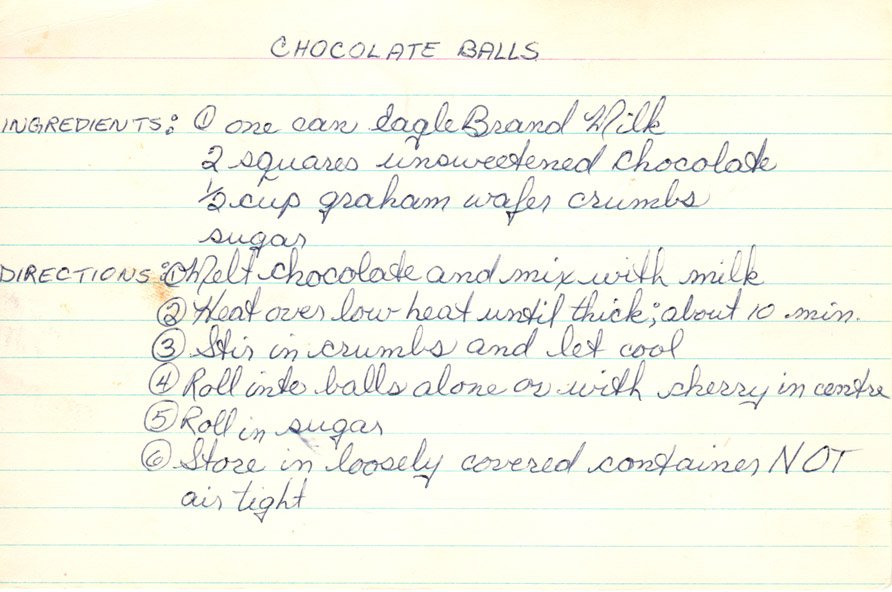 CHOCOLATE BALLS
INGREDIENTS: ① one can Eagle Brand Milk
2 squares unsweetened chocolate
1/2 cup graham wafer crumbs
sugar
DIRECTIONS: ① Melt chocolate and mix with milk
② Heat over low heat until thick; about 10 min.
③ Stir in crumbs and let cool
④ Roll into balls alone or with cherry in centre
⑤ Roll in sugar
⑥ Store in loosely covered container NOT
air tight